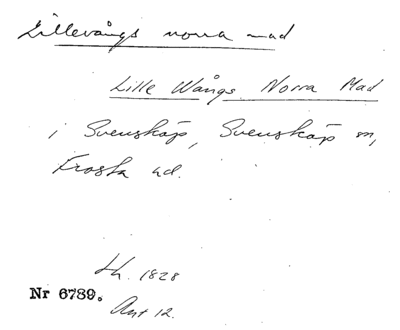 Lillevångs norra mad
Lille Wångs Norra Mad
i Svensköp, Svensköp sn,
Frosta hd.
Lh. 1828
Nr 6789.
Akt 12.